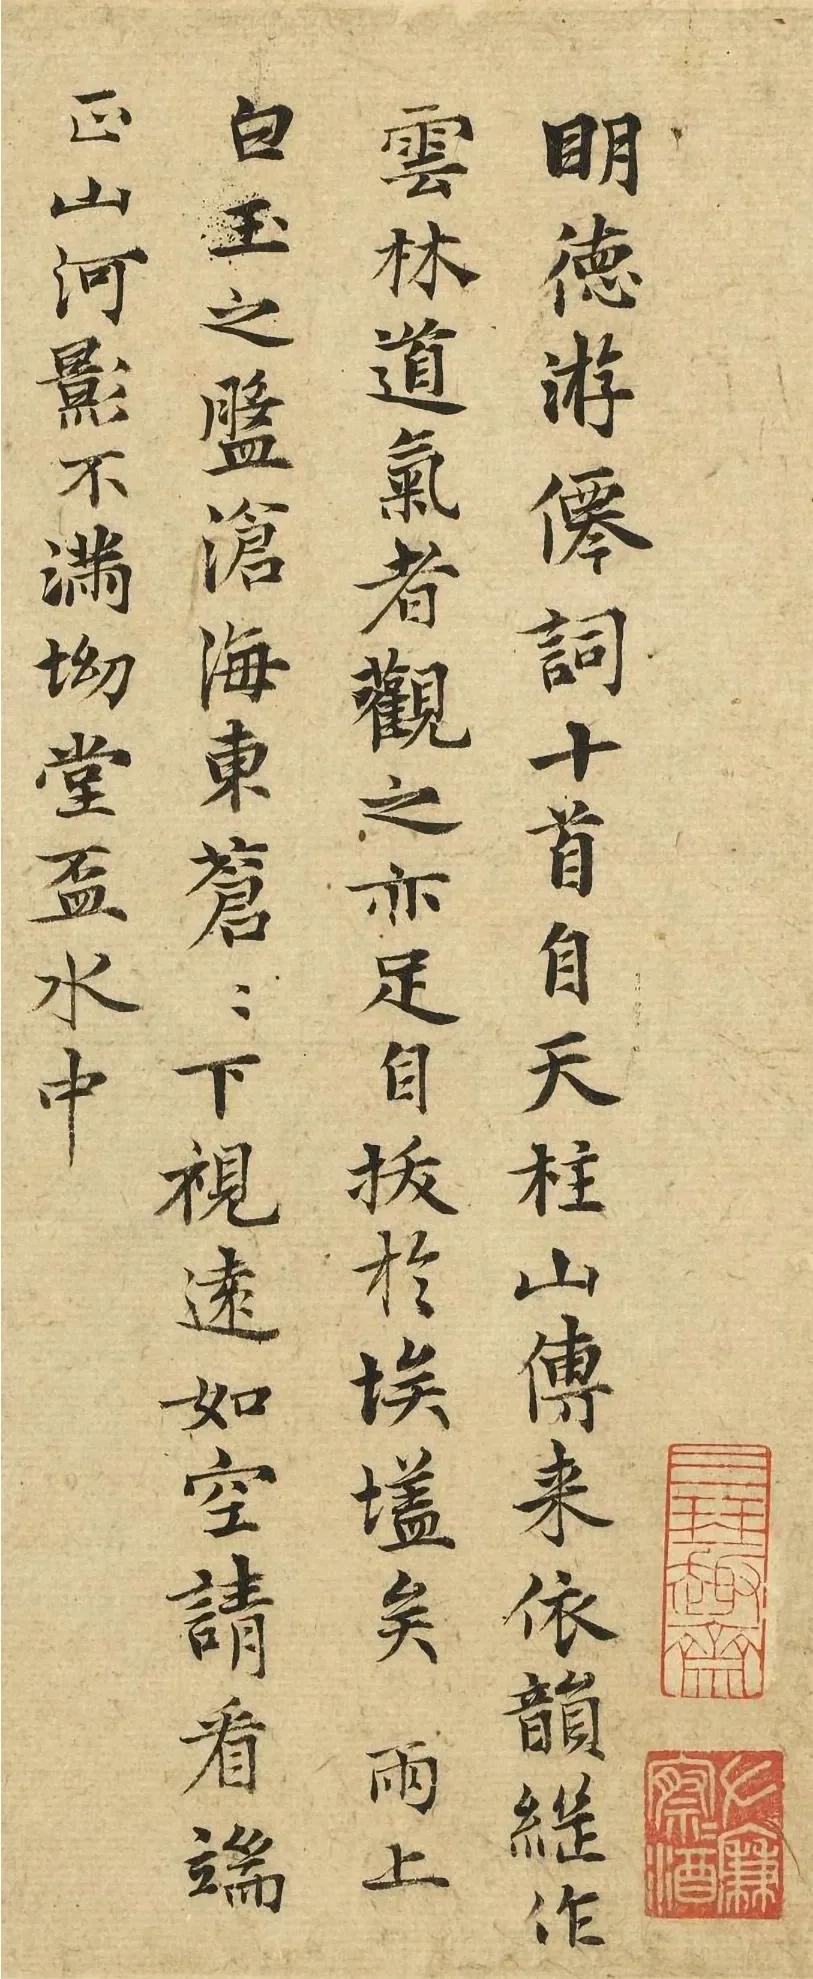 明德游僊詞十首自天柱山傳来依韻继作
雲林道氣者觀之亦足自拔於埃壒矣 雨上
白玉之盤滄海東蒼〻下視遠如空請看端
正山河影不滿坳堂盃水中